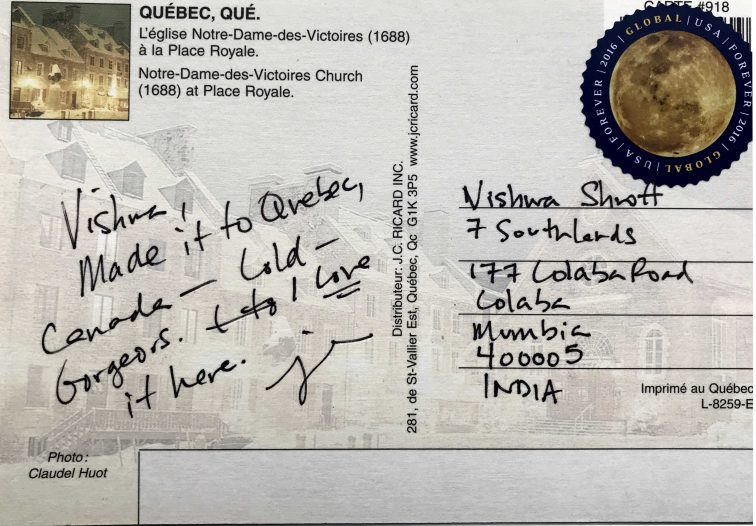 QUÉBEC, QUÉ.
L'église Notre-Dame-des-Victoires (1688)
à la Place Royale.
Notre-Dame-des-Victoires Church
(1688) at Place Royale.
CARTE #918
GLOBAL | USA | FOREVER | 2016 | GLOBAL | USA | FOREVER | 2016
Vishwa!
Made it to Quebec,
Canada — Cold —
Gorgeors. I love
it here.
Distributeur: J.C. RICARD INC.
281, de St-Vallier Est, Québec, Qc G1K 3P5 www.jcricard.com
Vishwa Shroff
7 Southlands
177 Colaba Road
Colaba
Mumbia
400005
INDIA
Imprimé au Québec
L-8259-E
Photo:
Claudel Huot